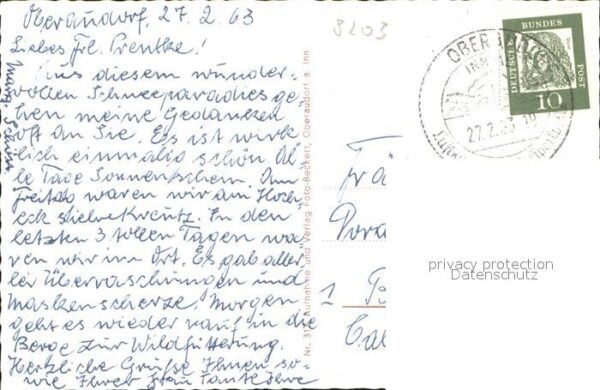 Oberaudorf, 27. 2. 63
Liebes Frl. Prentke!
Aus diesem wunder-
vollen Schneeparadies ge-
hen meine Gedanken
oft an Sie. Es ist wirk-
lich einmalig schön. Al-
le Tage Sonnenschein. Am
Freitag waren wir am Hoch-
eck
In den
letzten 3 tollen Tagen wa-
ren wir im Ort. Es gab aller-
lei Überraschungen und
Maskenscherze. Morgen
geht es wieder rauf in die
Berge zur Wildfütterung.
Herzliche Grüße Ihnen so-
wie Ihrer Frau Tante Ihre
Nr. Aufnahme und Verlag Foto-Beckert, Oberaudorf a. Inn
8203
OBERAUDORF
27.2.63
DEUTSCHE BUNDES POST
10
1
privacy protection
Datenschutz